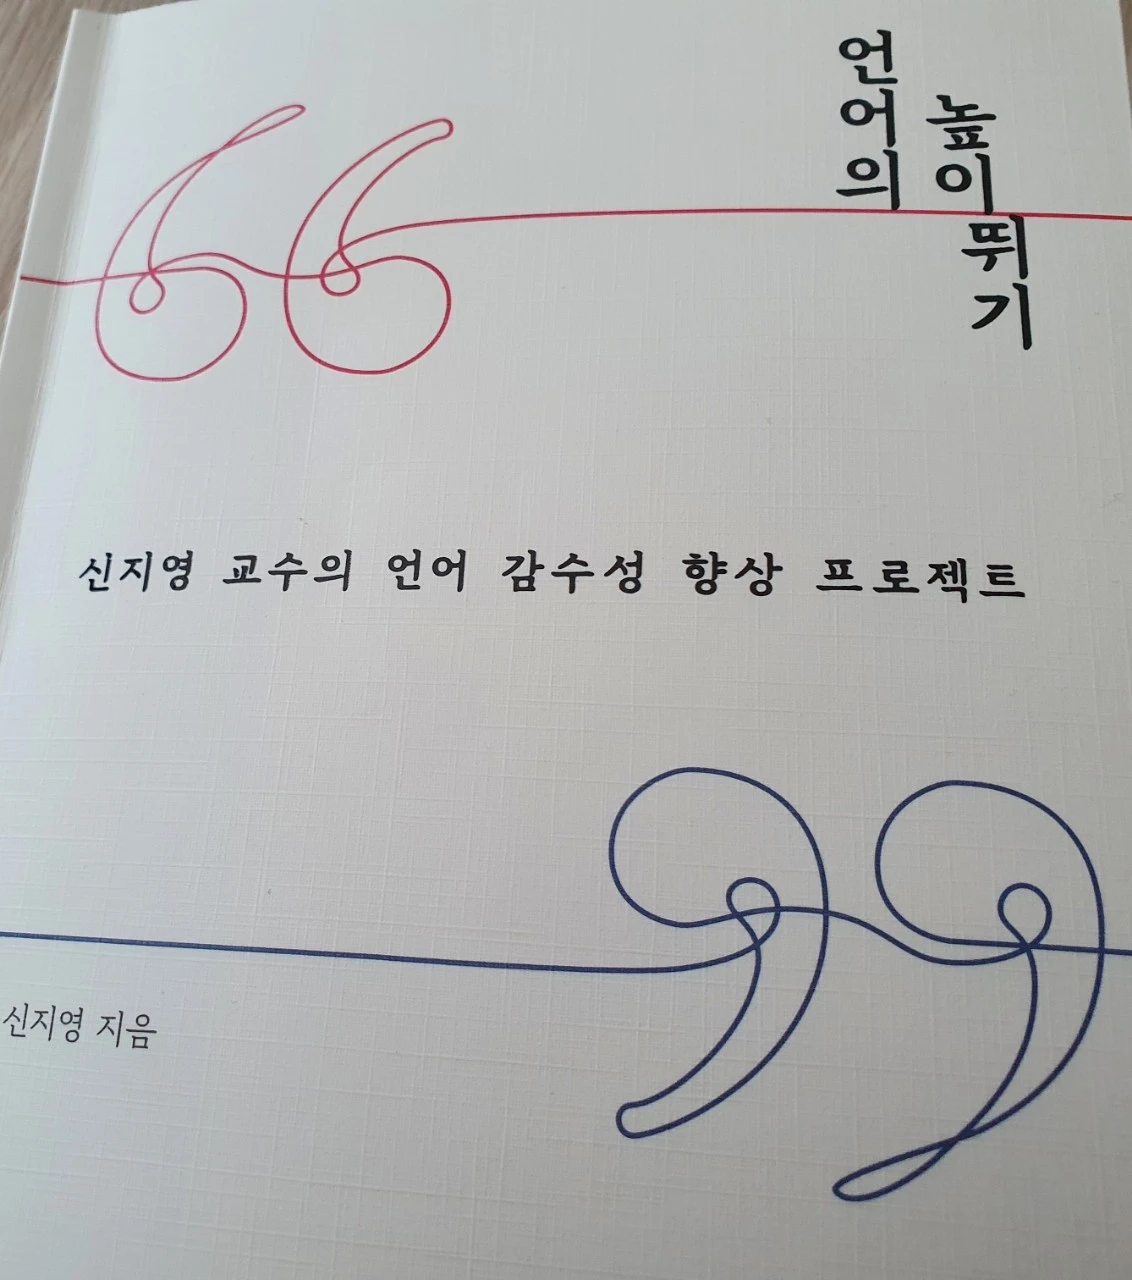 언어의
높이뛰기
신지영 교수의 언어 감수성 향상 프로젝트
신지영 지음